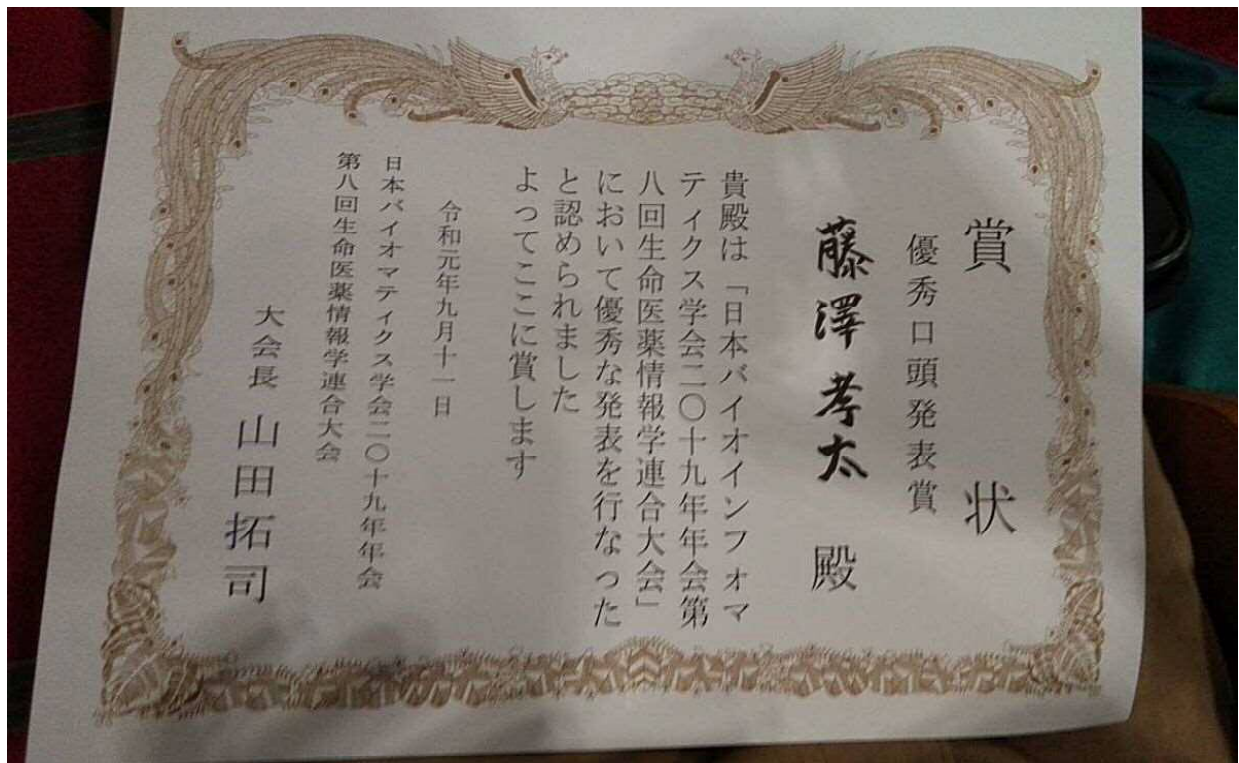 賞状
優秀口頭発表賞
藤澤孝太 殿
貴殿は「日本バイオインフォマ
ティクス学会二〇十九年年会第
八回生命医薬情報学連合大会」
において優秀な発表を行なった
と認められました
よってここに賞します
令和元年九月十一日
日本バイオマティクス学会二〇十九年年会
第八回生命医薬情報学連合大会
大会長 山田拓司